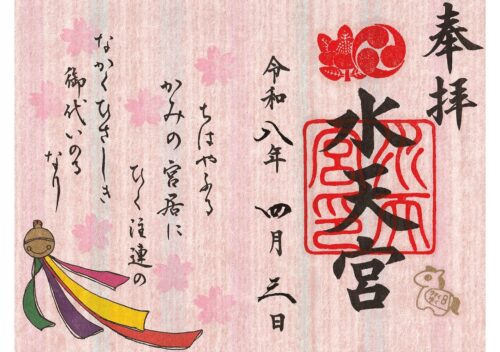 奉拝
水天宮
令和八年 四月 三日
ちはやふる
かみの宮居に
ひく注連の
なかくひさしき
御代いのる
なり